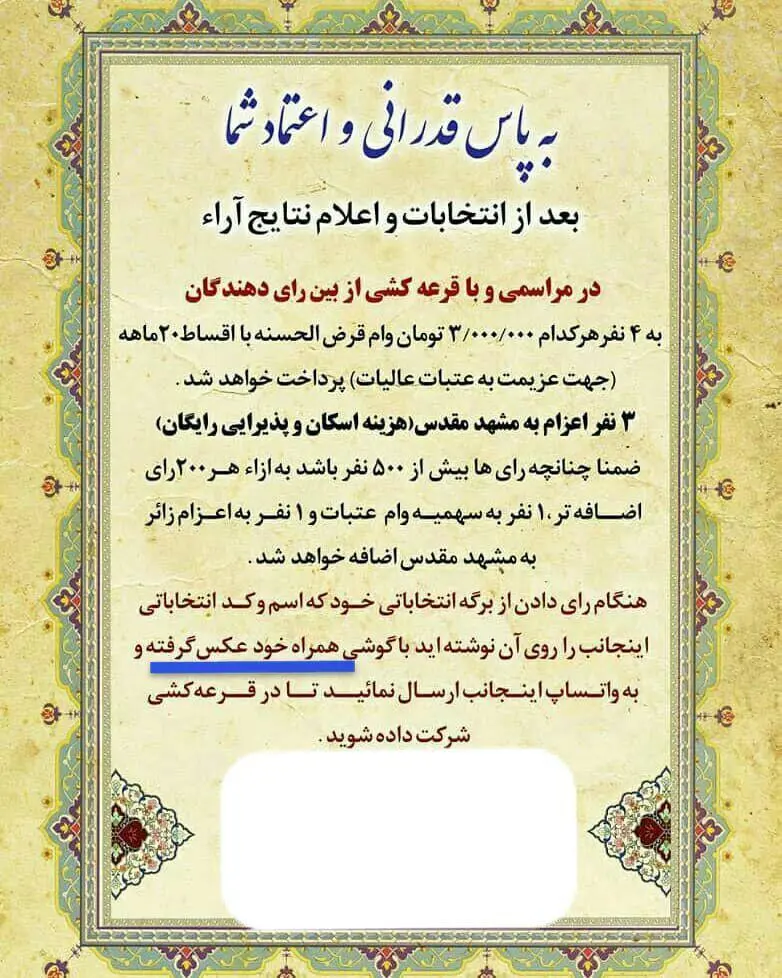 به پاس قدرانی و اعتماد شما
بعد از انتخابات و اعلام نتایج آراء
در مراسمی و با قرعه کشی از بین رای دهندگان
به ۴ نفرهرکدام ۳/۰۰۰/۰۰۰ تومان وام قرض الحسنه با اقساط۲۰ماهه
(جهت عزیمت به عتبات عالیات) پرداخت خواهد شد .
۳ نفر اعزام به مشهد مقدس(هزینه اسکان و پذیرایی رایگان)
ضمنا چنانچه رای ها بیش از ۵۰۰ نفر باشد به ازاء هر۲۰۰رای
اضافه تر،۱ نفر به سهمیه وام عتبات و ۱ نفر به اعزام زائر
به مشهد مقدس اضافه خواهد شد .
هنگام رای دادن از برگه انتخاباتی خود که اسم و کد انتخاباتی
اینجانب را روی آن نوشته اید با گوشی همراه خود عکس گرفته و
به واتساپ اینجانب ارسال نمائید تا در قرعه کشی
شرکت داده شوید .